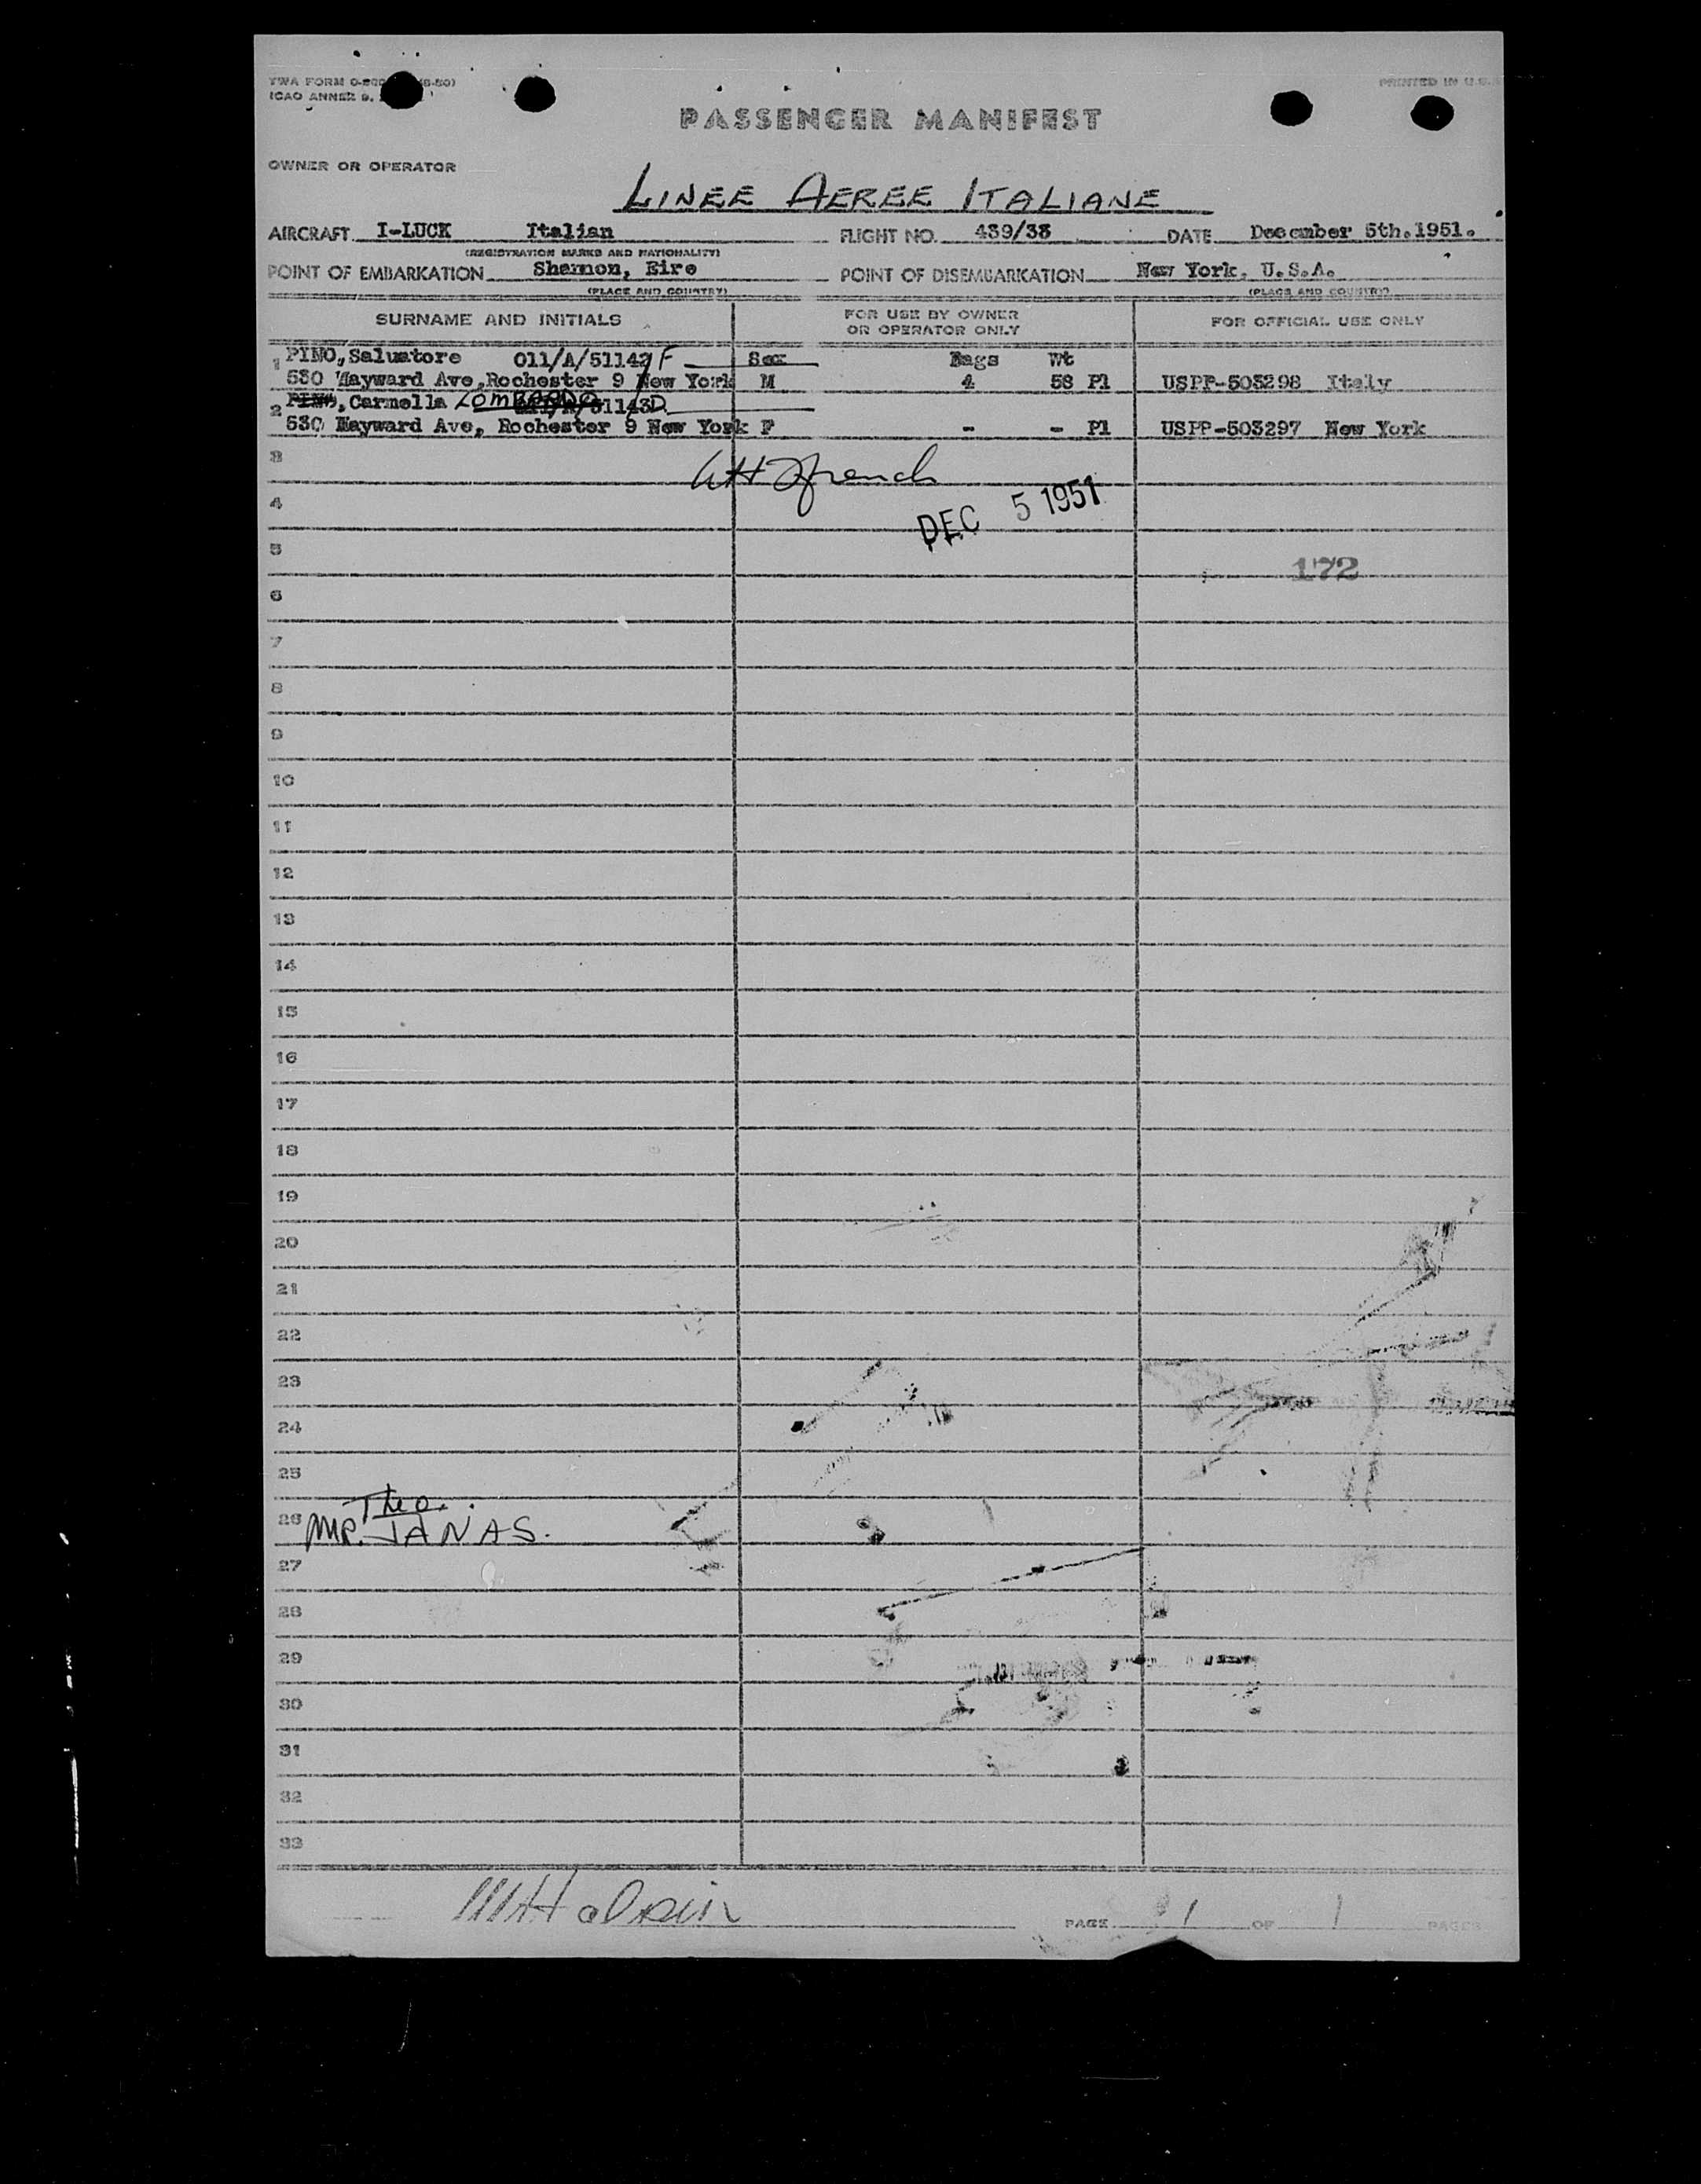 TWA FORM
ICAO ANNEX 9,
PRINTED IN U.S.
PASSENGER MANIFEST
OWNER OR OPERATOR
LINEE AEREE ITALIANE
AIRCRAFT I-LUCK Italian FLIGHT NO. 439/38 DATE December 5th.1951.
(REGISTRATION MARKS AND NATIONALITY)
POINT OF EMBARKATION Shannon, Eire POINT OF DISEMBARKATION New York, U.S.A.
(PLACE AND COUNTRY) (PLACE AND COUNTRY)
SURNAME AND INITIALS FOR USE BY OWNER OR OPERATOR ONLY FOR OFFICIAL USE ONLY
1 PINO, Salvatore 011/A/51142 F Sex Bags Wt
530 Hayward Ave, Rochester 9 New York M 4 58 Pl USPP-503298 Italy
2 PINO, Carmella LOMBARDO 011/A/51143D
530 Hayward Ave, Rochester 9 New York F - - Pl USPP-503297 New York
3
4
DEC 5 1951
5
172
6
7
8
9
10
11
12
13
14
15
16
17
18
19
20
21
22
23
24
25
Theo.
26 MR. JANAS.
27
28
29
30
31
32
33
PAGE 1 OF 1 PAGES